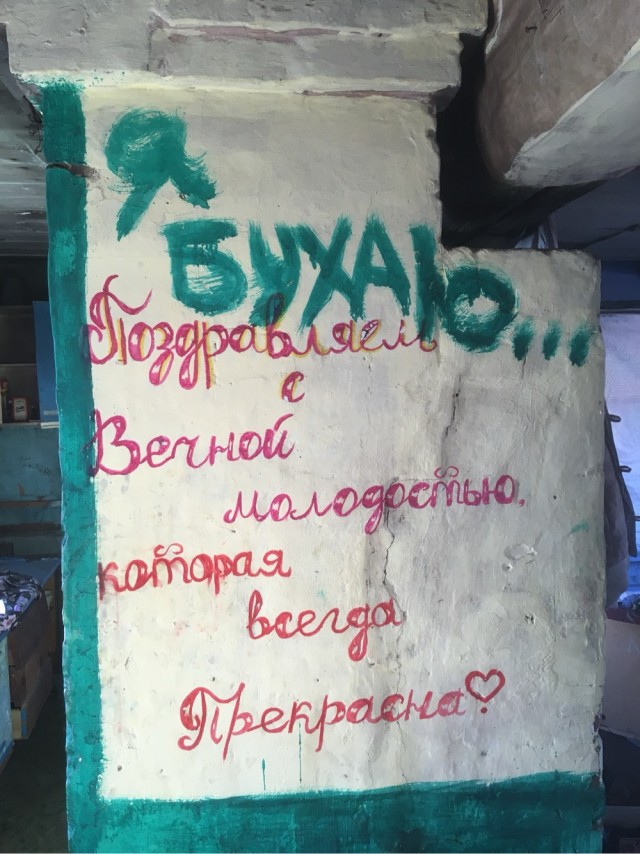 Я
БУХАЮ...
Поздравляем
с
Вечной
молодостью,
которая
всегда
Прекрасна!♡